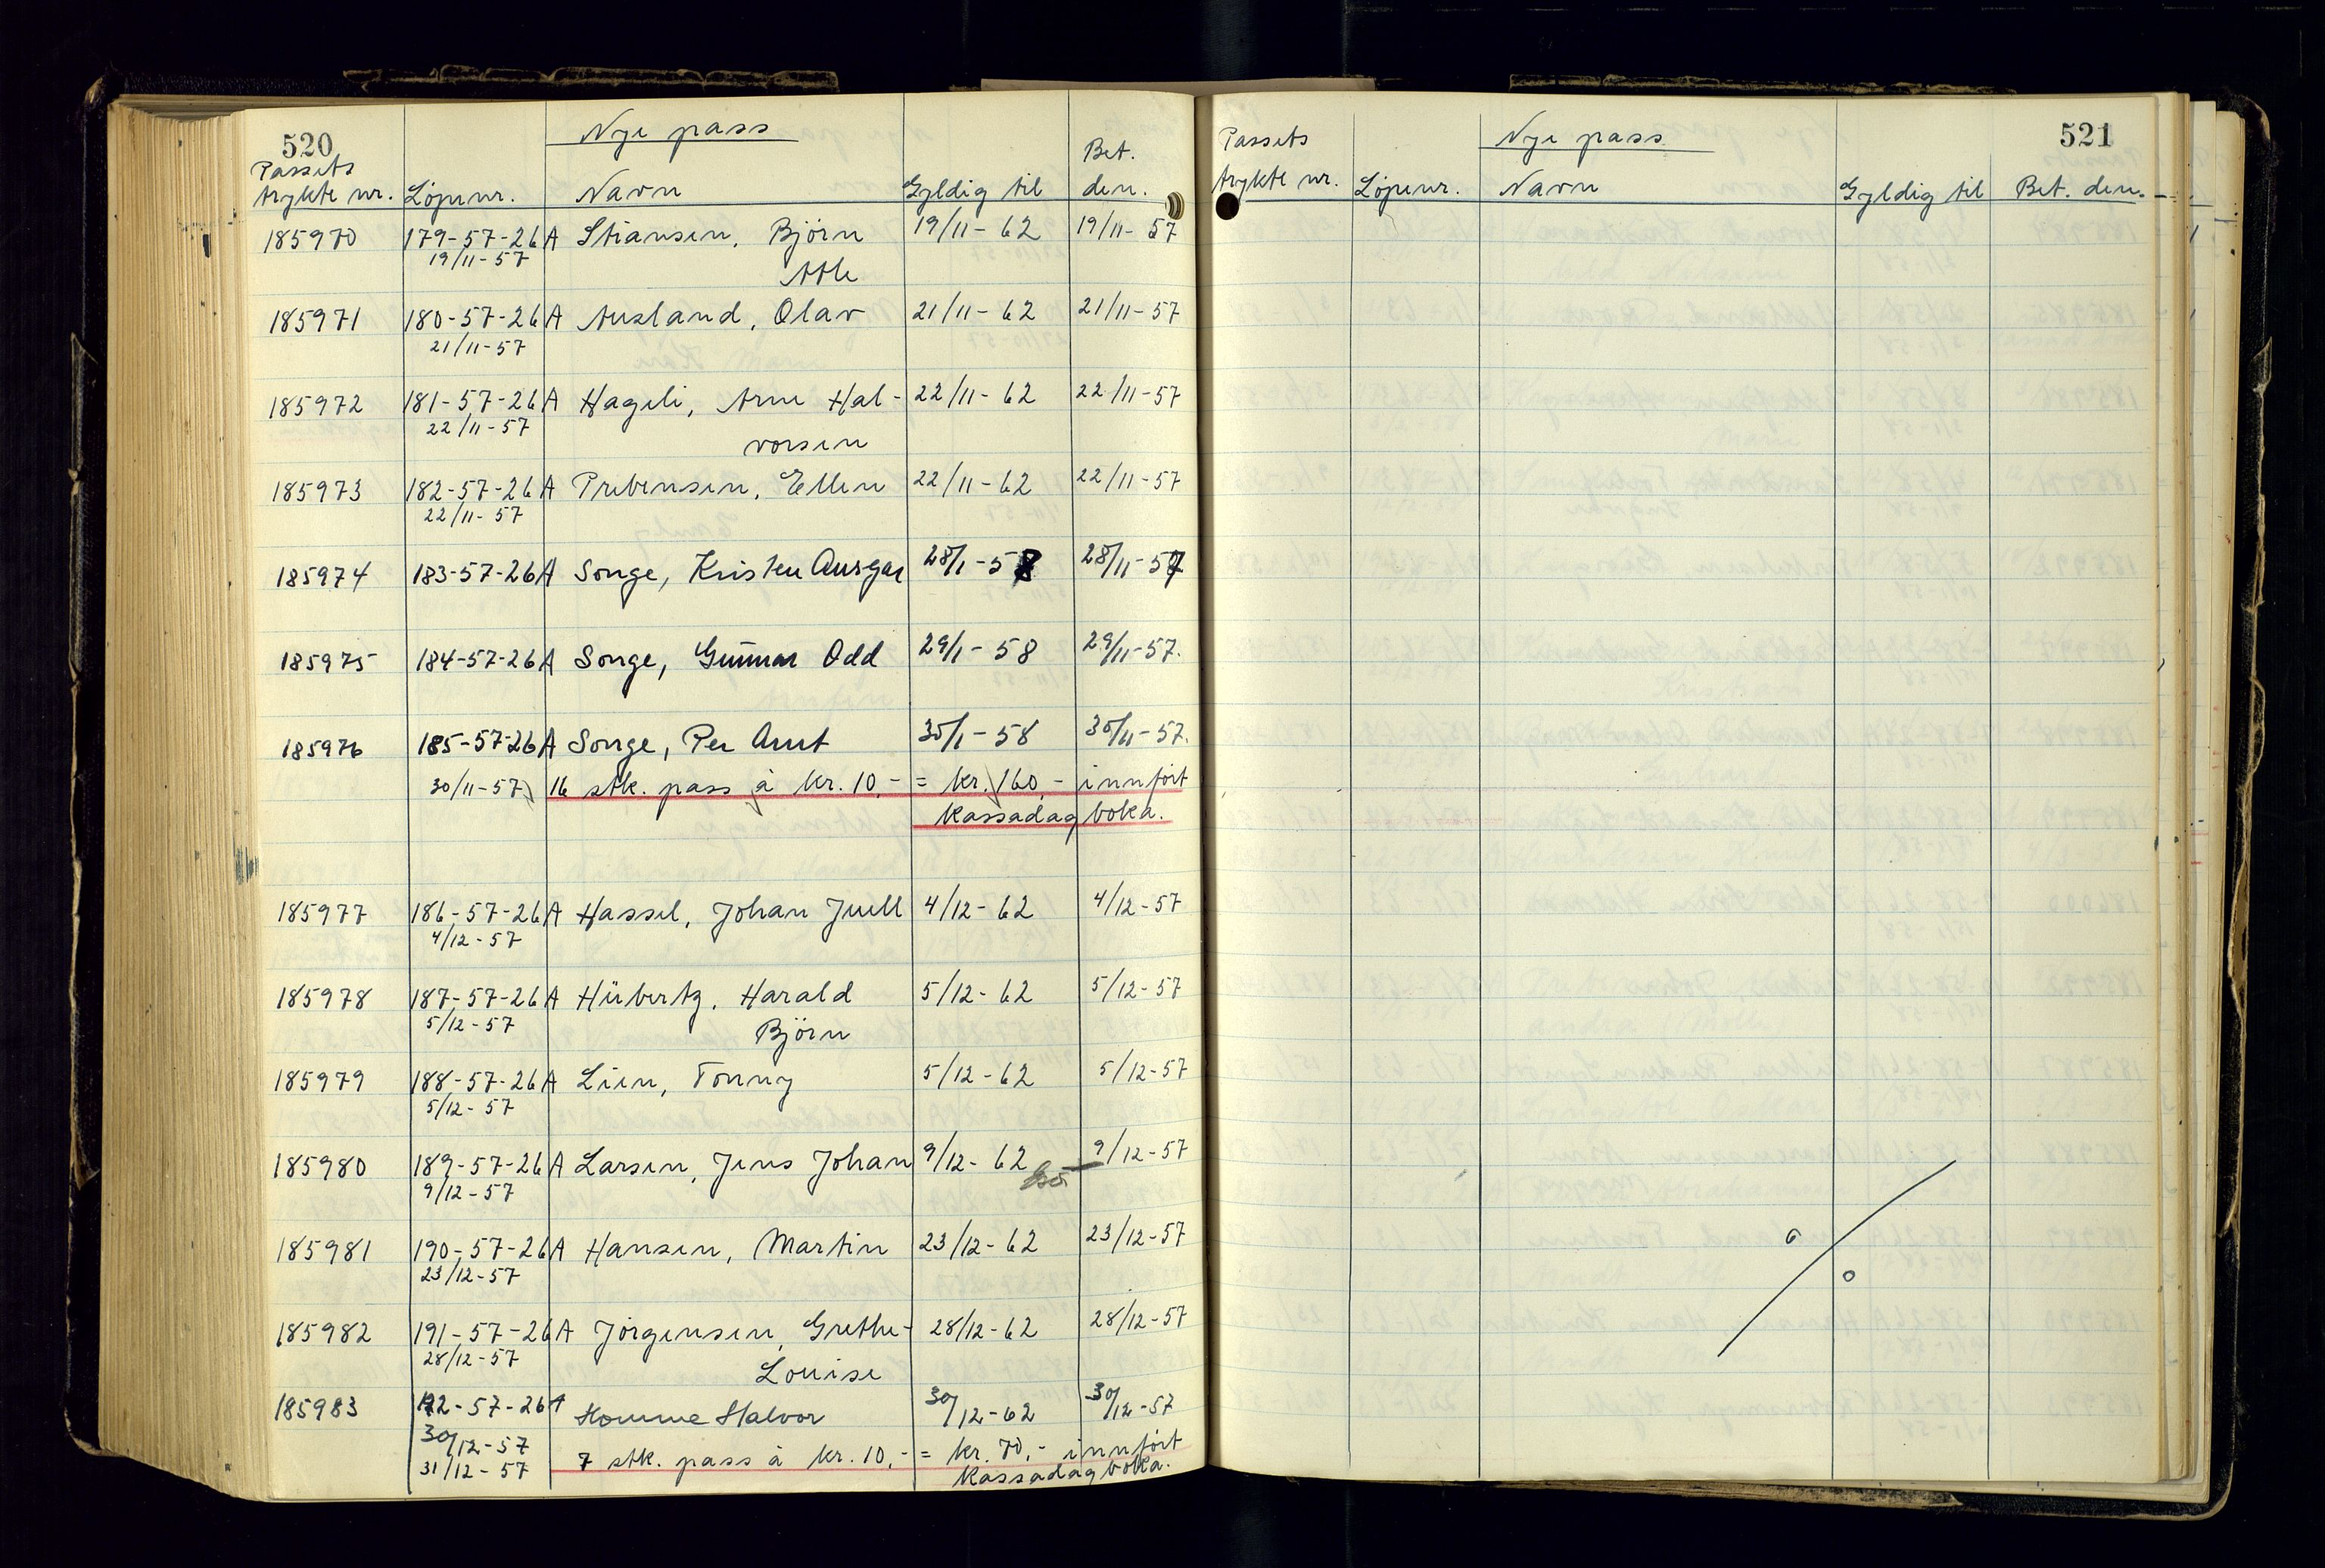 520
Nye pass
Passets
trykte nr. Löpenr. Navn Gyldig til Bet. den.
185970 179-57-26A Stiansen, Björn 19/11-62 19/11-57
19/11-57 Atle
185971 180-57-26A Ausland, Olav 21/11-62 21/11-57
21/11-57
185972 181-57-26A Hageli, Arne Hal- 22/11-62 22/11-57
22/11-57 vorsen
185973 182-57-26A Prebensen, Ellen 22/11-62 22/11-57
22/11-57
185974 183-57-26A Songe, Kristen Ansgar 28/1-58 28/11-57
185975 184-57-26A Songe, Gunnar Odd 29/1-58 29/11-57.
185976 185-57-26A Songe, Per Arnt 30/1-58 30/11-57.
30/11-57 16 stk. pass à kr. 10,- = kr. 160,- innfört
kassadagboka.
185977 186-57-26A Hassel, Johan Juell 4/12-62 4/12-57
4/12-57
185978 187-57-26A Hübertz, Harald 5/12-62 5/12-57
5/12-57 Björn
185979 188-57-26A Lien, Tonny 5/12-62 5/12-57
5/12-57
185980 189-57-26A Larsen, Jens Johan 9/12-62 9/12-57
9/12-57
185981 190-57-26A Hansen, Martin 23/12-62 23/12-57
23/12-57
185982 191-57-26A Jörgensen, Grethe- 28/12-62 28/12-57
28/12-57 Louise
185983 192-57-26A Homme Halvor 30/12-62 30/12-57
30/12-57
31/12-57 7 stk. pass à kr. 10,- = kr. 70,- innfört
kassadagboka.
521
Nye pass
Passets
trykte nr. Löpenr. Navn Gyldig til Bet. den.